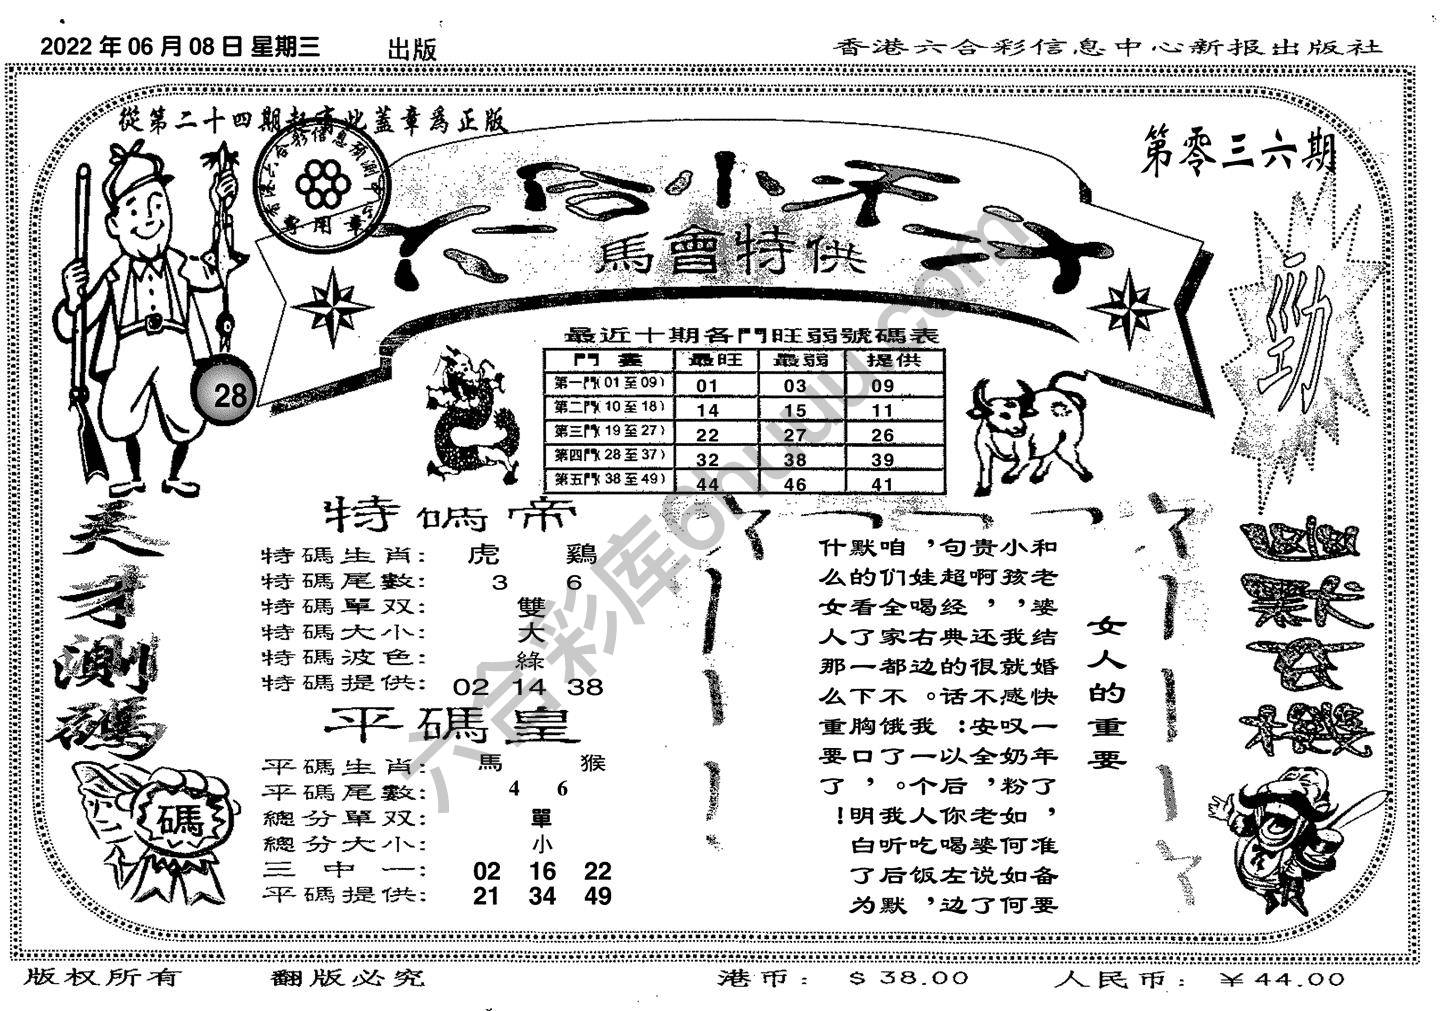 2022 年 06 月 08 日 星期三
出版
香港六合彩信息中心新报出版社
從第二十四期起有此蓋章為正版
第零三六期
馬會特供
勁
28
最近十期各門旺弱號碼表
門 數 最旺 最弱 提供
第一門(01至09) 01 03 09
第二門(10至18) 14 15 11
第三門(19至27) 22 27 26
第四門(28至37) 32 38 39
第五門(38至49) 44 46 41
天才測碼
碼
特碼帝
特碼生肖: 虎 鷄
特碼尾數: 3 6
特碼單双: 雙
特碼大小: 大
特碼波色: 綠
特碼提供: 02 14 38
平碼皇
平碼生肖: 馬 猴
平碼尾數: 4 6
總分單双: 單
總分大小: 小
三中一: 02 16 22
平碼提供: 21 34 49
女人的重要
和老婆结婚快一年了，准备要
小孩，我就感叹奶粉如何如何
贵啊，还很不安全，老婆说了
句超经典的话：以后你喝左边
，娃喝右边。我一个人吃饭，
咱们全家都不饿了。我听后默
默的看了一下胸口，明白了为
什么女人那么重要了！
六合彩库6huuu.com
版权所有
翻版必究
港币： $ 38.00
人民币： ¥ 44.00